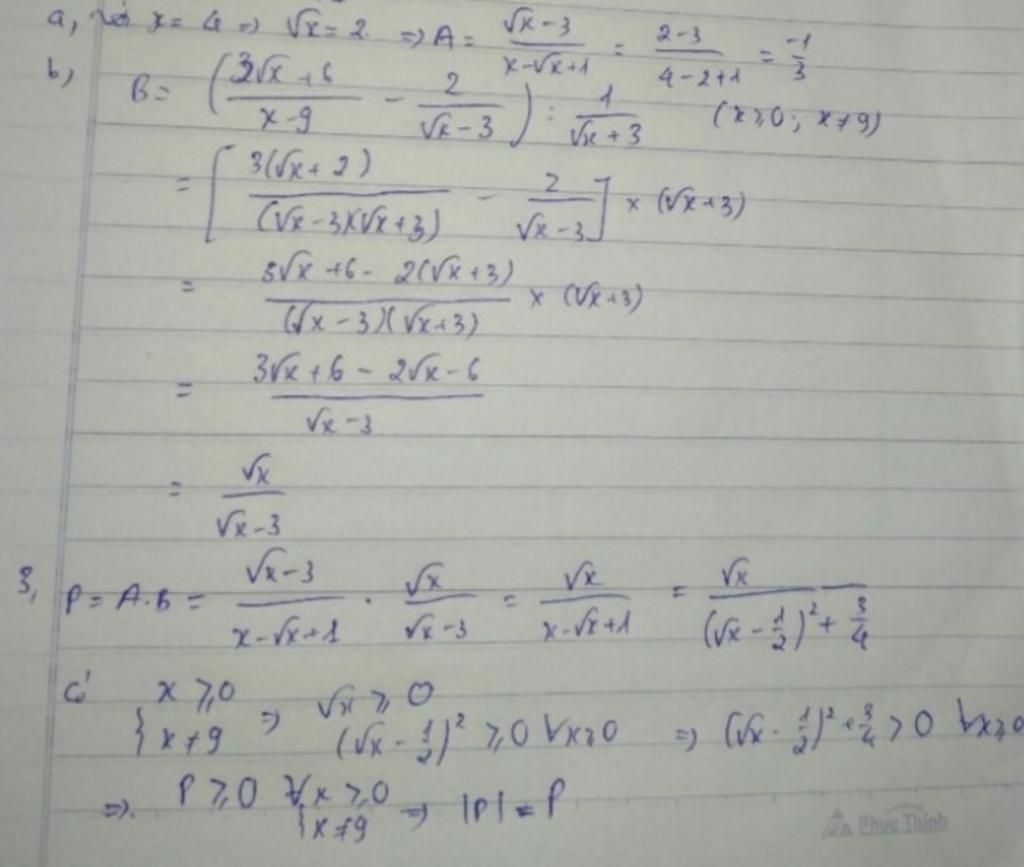 a, với x = 4 => √x = 2 => A = (√x - 3)/(x - √x + 1) = (2 - 3)/(4 - 2 + 1) = -1/3
b) B = ( (3√x + 6)/(x - 9) - 2/(√x - 3) ) : 1/(√x + 3) (x ⩾ 0; x ≠ 9)
= [ 3(√x + 2)/((√x - 3)(√x + 3)) - 2/(√x - 3) ] × (√x + 3)
= (3√x + 6 - 2(√x + 3))/((√x - 3)(√x + 3)) × (√x + 3)
= (3√x + 6 - 2√x - 6)/(√x - 3)
= √x/(√x - 3)
3, P = A.B = (√x - 3)/(x - √x + 1) . √x/(√x - 3) = √x/(x - √x + 1) = √x/((√x - 1/2)² + 3/4)
Có { x ⩾ 0 ; x ≠ 9 => √x ⩾ 0 ; (√x - 1/2)² ⩾ 0 ∀x ⩾ 0 => (√x - 1/2)² + 3/4 > 0 ∀x ⩾ 0
=> P ⩾ 0 ∀ { x ⩾ 0 ; x ≠ 9 => |P| = P
Phuc Thinh